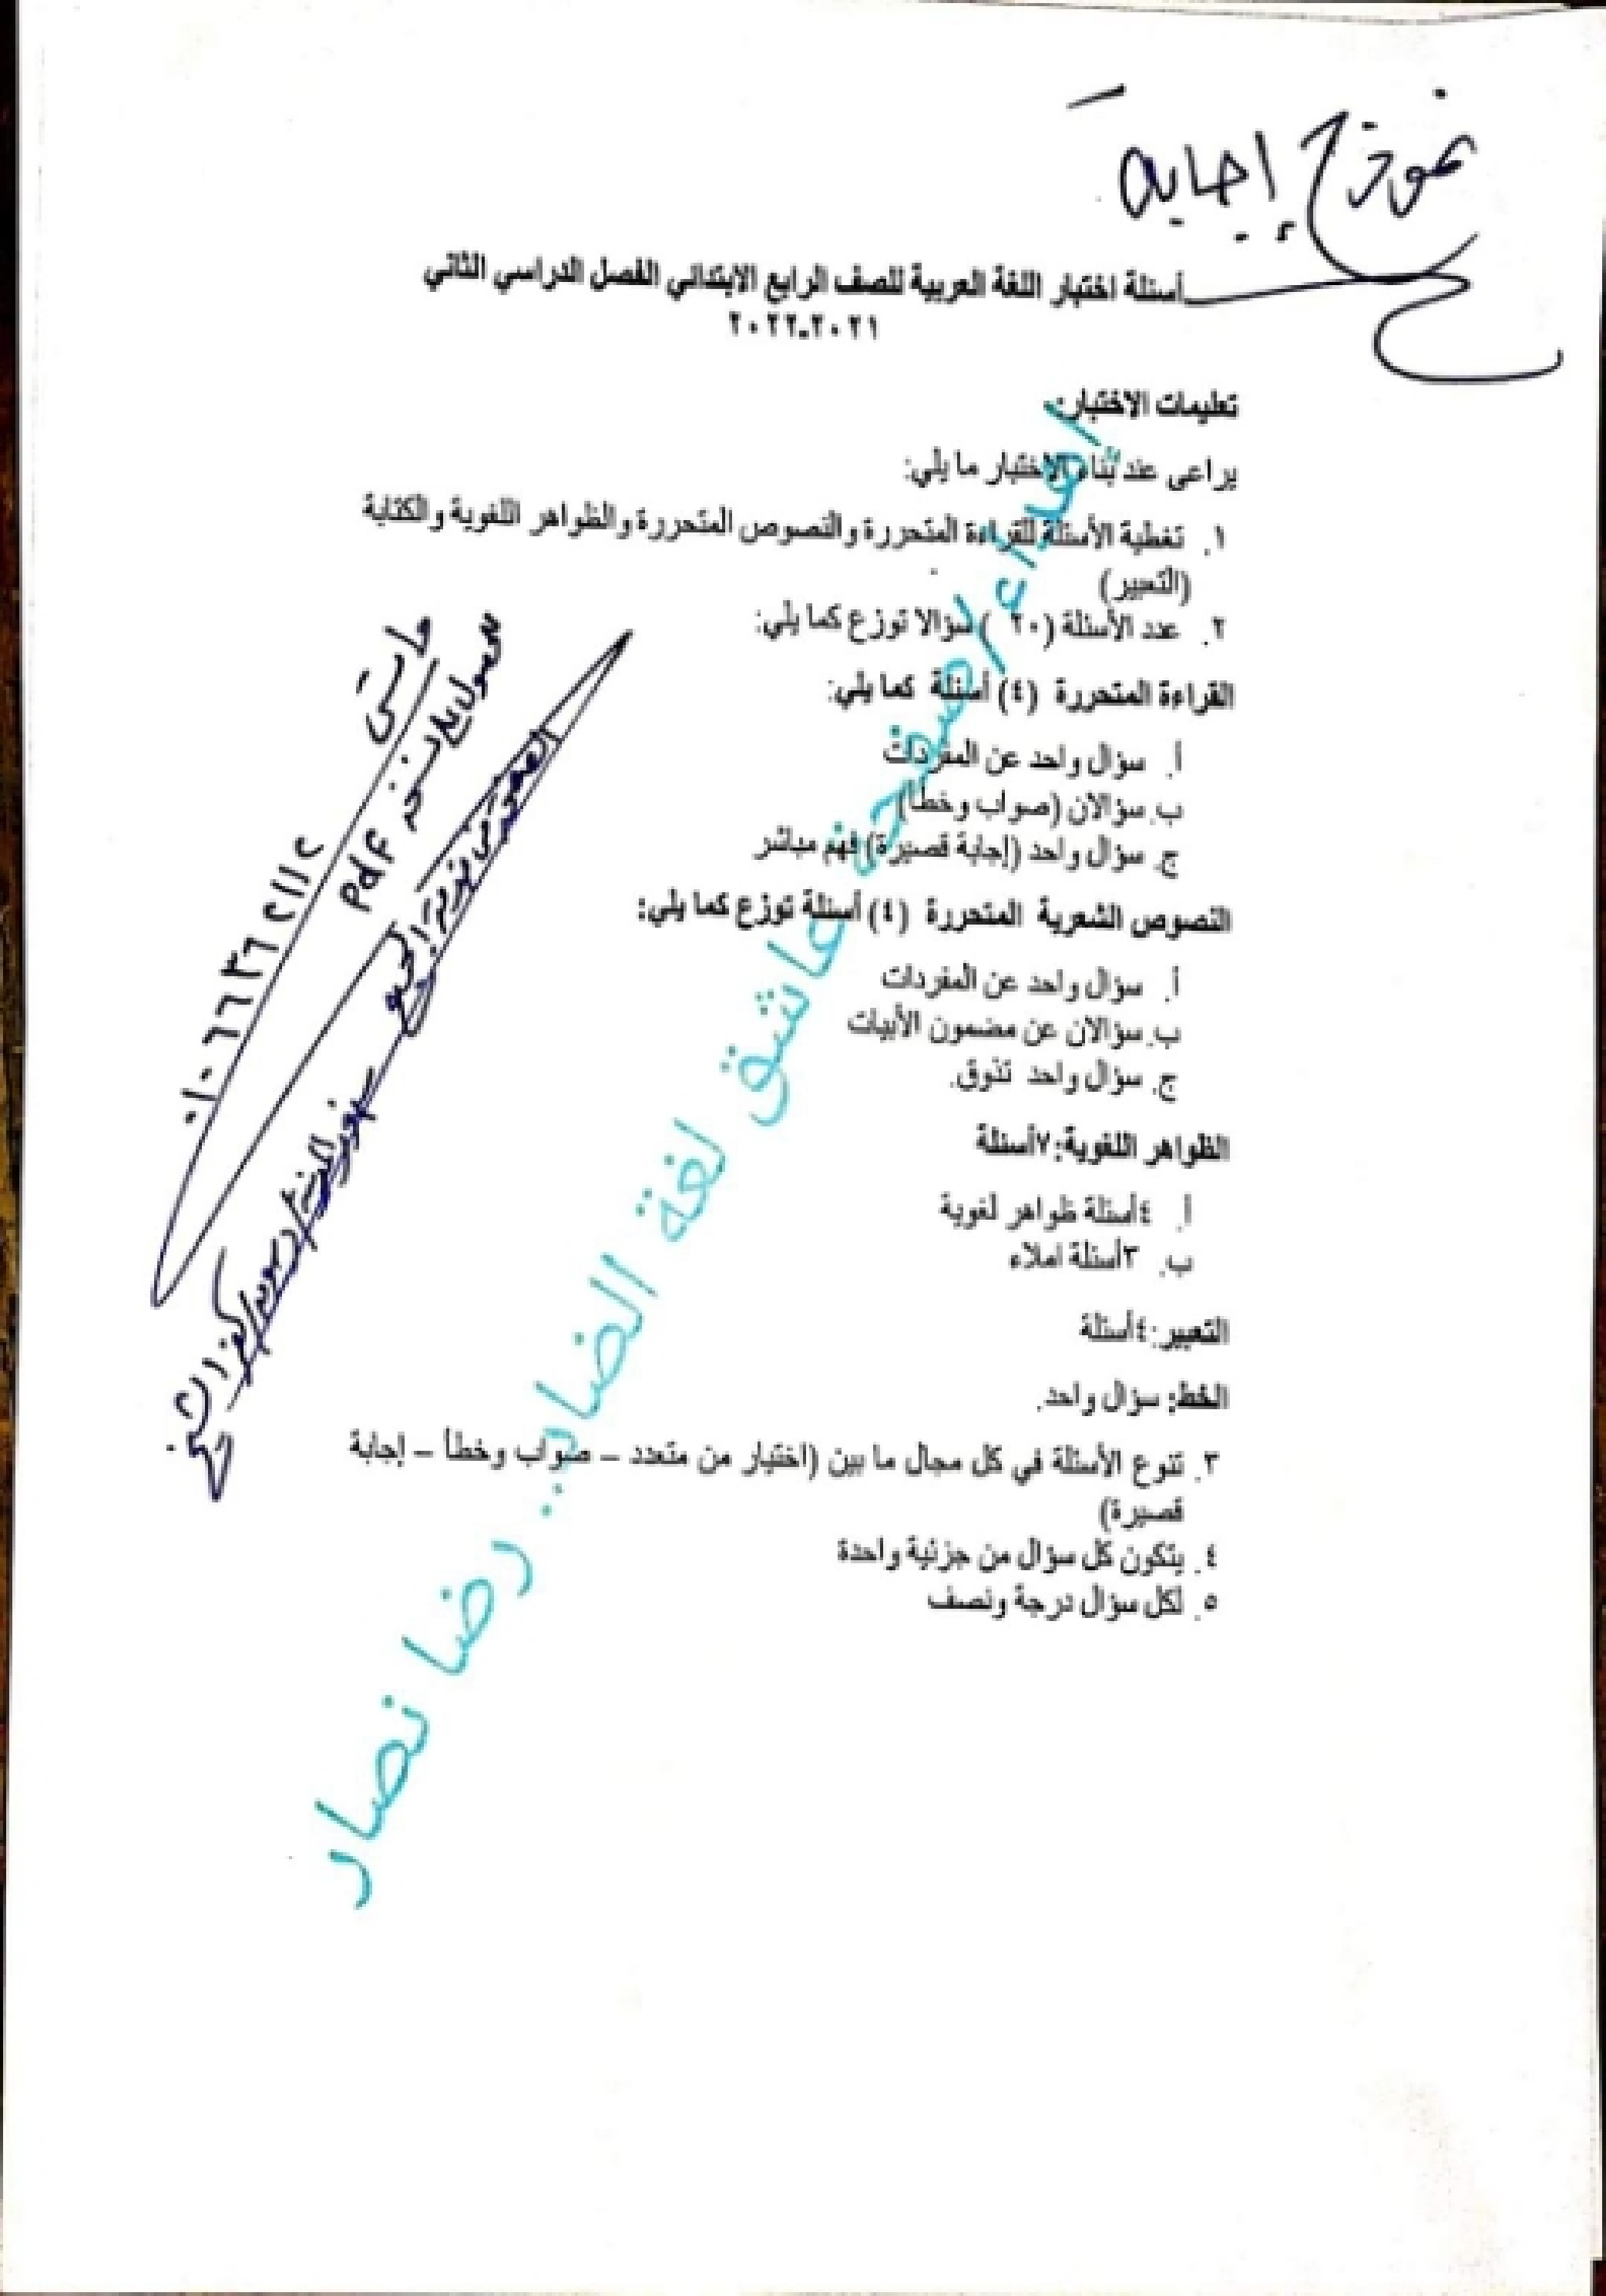 نموذج إجابة
أسئلة اختبار اللغة العربية للصف الرابع الابتدائي الفصل الدراسي الثاني
٢٠٢١-٢٠٢٢
تعليمات الاختبار:
يراعى عند بناء الاختبار ما يلي:
١. تغطية الأسئلة للقراءة المتحررة والنصوص المتحررة والظواهر اللغوية والكتابة
(التعبير)
٢. عدد الأسئلة (٢٠) سؤالا توزع كما يلي:
القراءة المتحررة (٤) أسئلة كما يلي:
أ. سؤال واحد عن المفردات
ب. سؤالان (صواب وخطأ)
ج. سؤال واحد (إجابة قصيرة) فهم مباشر
النصوص الشعرية المتحررة (٤) أسئلة توزع كما يلي:
أ. سؤال واحد عن المفردات
ب. سؤالان عن مضمون الأبيات
ج. سؤال واحد تذوق.
الظواهر اللغوية:٧أسئلة
أ. ٤أسئلة ظواهر لغوية
ب. ٣أسئلة املاء
التعبير:٤أسئلة
الخط: سؤال واحد.
٣. تنوع الأسئلة في كل مجال ما بين (اختيار من متعدد – صواب وخطأ – إجابة
قصيرة)
٤. يتكون كل سؤال من جزئية واحدة
٥. لكل سؤال درجة ونصف
إهداء/صفحة عاشق لغة الضاد.. رضا نصار
نسخه pdf